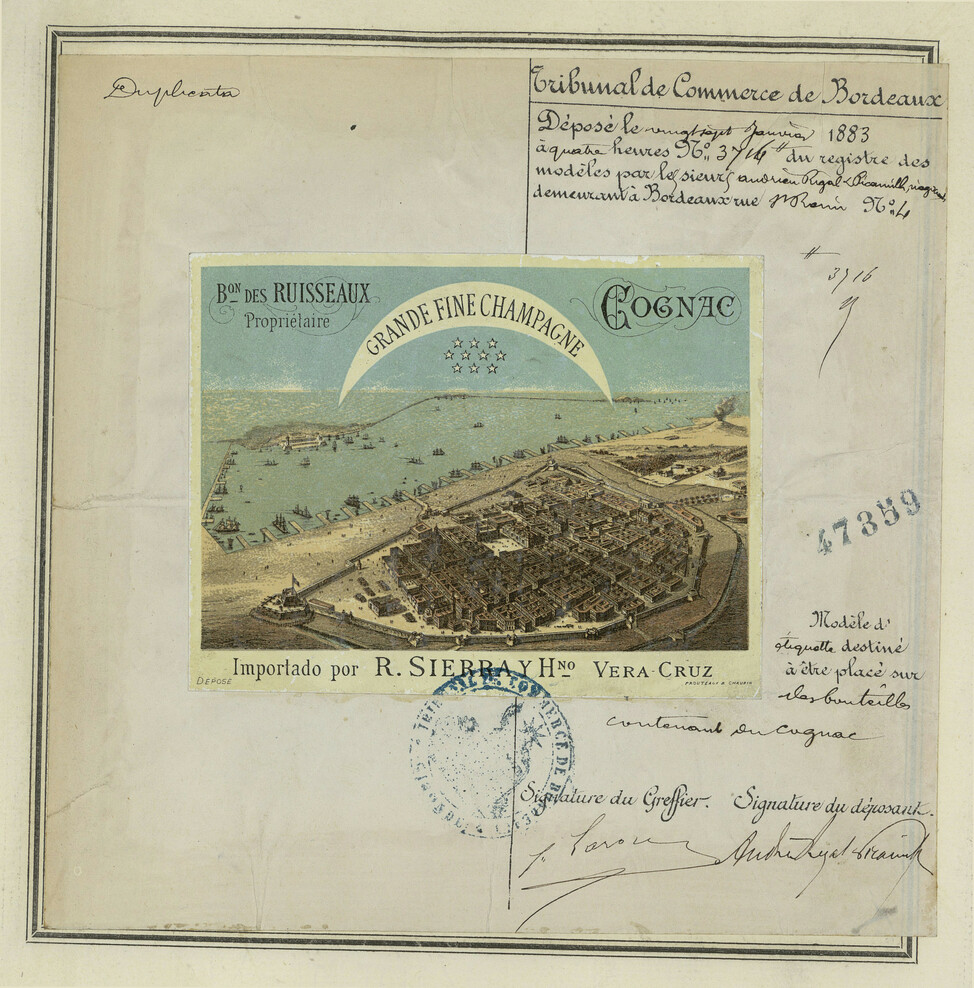 Duplicata
Tribunal de Commerce de Bordeaux
Déposé le vingt sept Janvier 1883
à quatre heures No. 3716 du registre des
modèles par les sieurs
demeurant à Bordeaux rue St Remi No. 4
3716
Bon DES RUISSEAUX
Propriétaire
GRANDE FINE CHAMPAGNE
COGNAC
47359
Modèle d'
étiquette destiné
à être placé sur
des bouteilles
contenant du Cognac
Importado por R. SIERRA Y HNO VERA-CRUZ
DÉPOSÉ
TRIBUNAL DE COMMERCE DE BORDEAUX
Signature du Greffier. Signature du déposant.